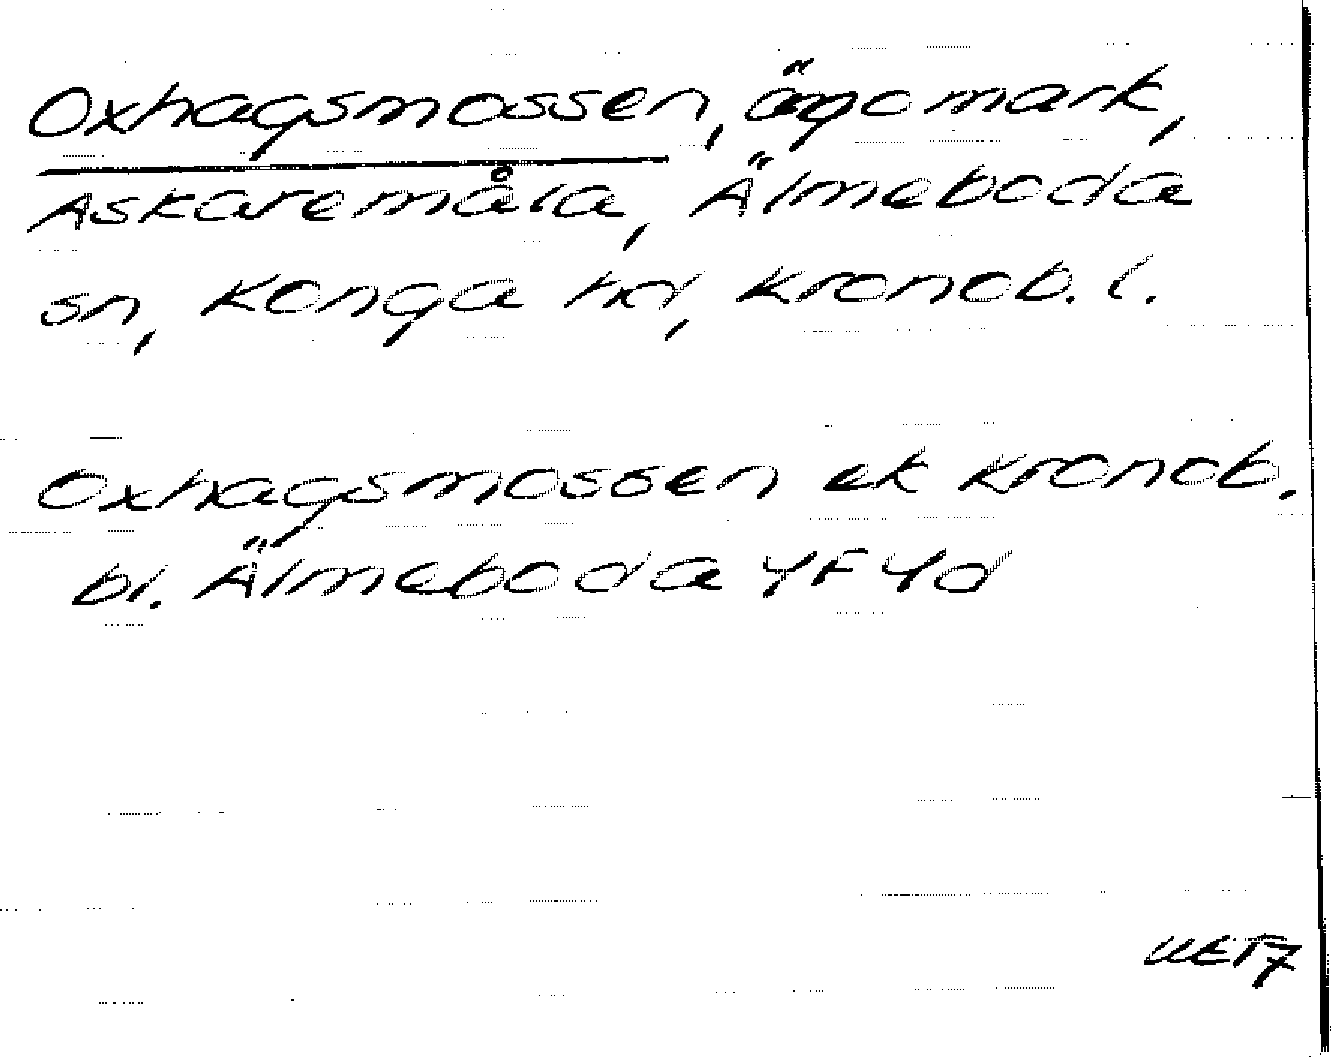 Oxhagsmossen, ägomark,
Askaremåla, Älmeboda
sn, Konga hd, Kronob. l.
Oxhagsmossen ek Kronob.
bl. Älmeboda 4F 4d